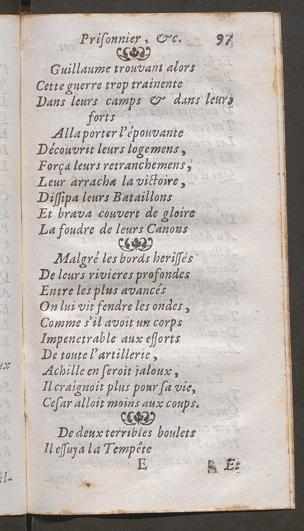 Priſonnier, &c. 97
Guillaume trouvant alors
Cette guerre trop trainente
Dans leurs camps & dans leurs
forts
Alla porter l'épouvante
Découvrit leurs logemens,
Força leurs retranchemens,
Leur arracha la victoire,
Diſſipa leurs Bataillons
Et brava couvert de gloire
La foudre de leurs Canons
Malgré les bords heriſſés
De leurs rivieres profondes
Entre les plus avancés
On lui vit fendre les ondes,
Comme s'il avoit un corps
Impenetrable aux efforts
De toute l'artillerie,
Achille en ſeroit jaloux,
Il craignoit plus pour ſa vie,
Ceſar alloit moins aux coups.
De deux terribles boulets
Il eſſuya la Tempête
E Et